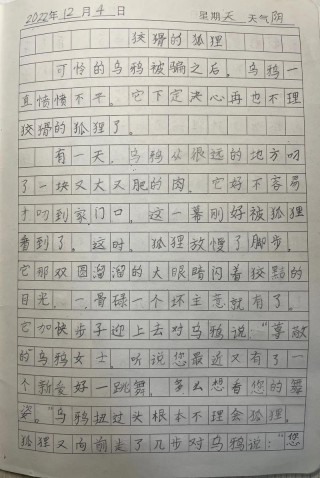 2022年12月4日 星期天 天气阴
狡猾的狐狸
可怜的乌鸦被骗之后。乌鸦一
直愤愤不平。它下定决心再也不理
狡猾的狐狸了。
有一天,乌鸦从很远的地方叼
了一块又大又肥的肉。它好不容易
才叼到家门口。这一幕刚好被狐狸
看到了。这时,狐狸放慢了脚步。
它那双圆溜溜的大眼睛闪着狡黠的
目光。一骨碌一个坏主意就有了。
它加快步子迎上去对乌鸦说:“尊敬
的乌鸦女士。听说您最近又有了一
个新爱好一跳舞。多么想看您的舞
姿。”乌鸦扭过头根本不理会狐狸。
狐狸又向前走了几步对乌鸦说:“您